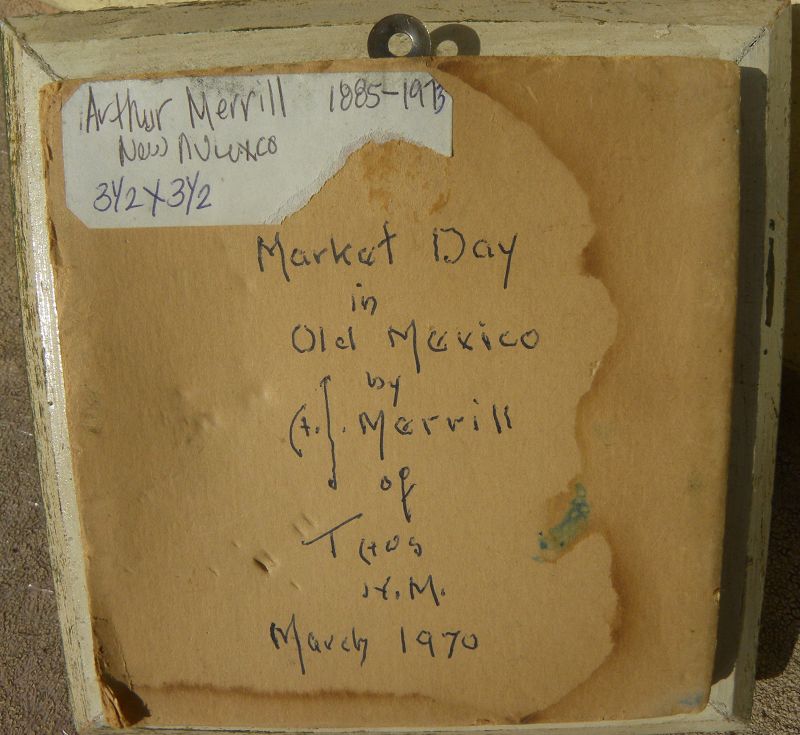 Arthur Merrill 1885-1973
New Mexico
3 1/2 X 3 1/2
Market Day
in
Old Mexico
by
A. J. Merrill
of
Taos
N.M.
March 1970